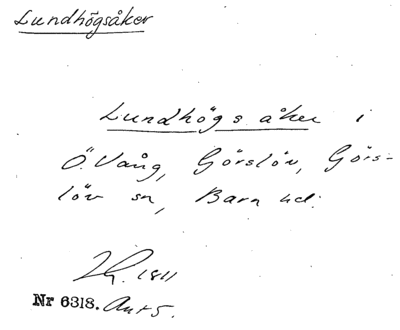 Lundhögsåker
Lundhögs åker i
Ö. Vång, Görslöv, Görs-
löv sn, Bara hd.
1811
Nr 6318. Ant 5.